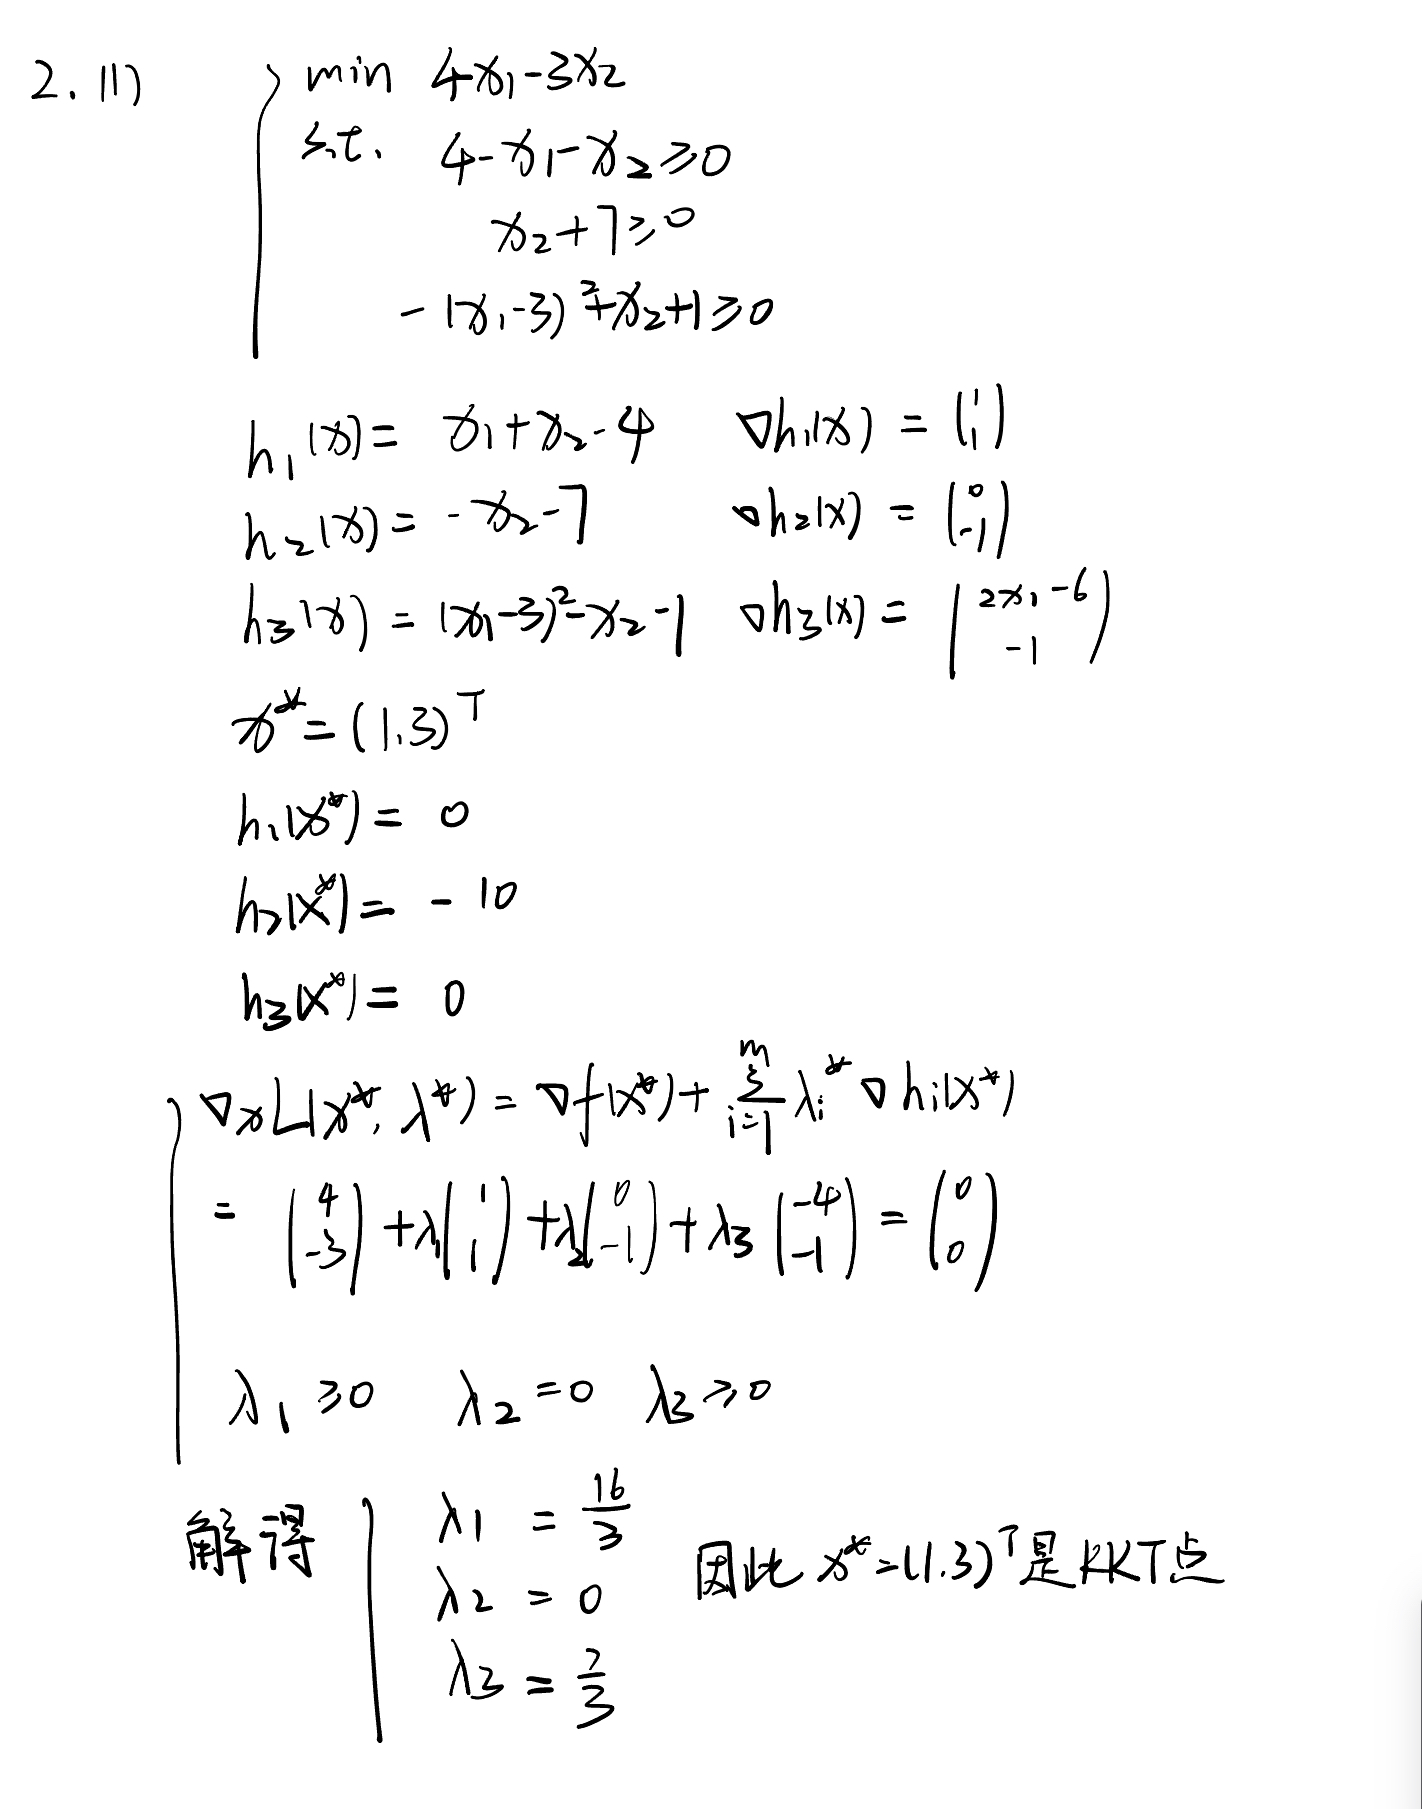 2. (1) { min 4x₁-3x₂
s.t. 4-x₁-x₂≥0
x₂+7≥0
-(x₁-3)²+x₂+1≥0
h₁(x)= x₁+x₂-4 ∇h₁(x) = (1 1)
h₂(x)= -x₂-7 ∇h₂(x) = (0 -1)
h₃(x) = (x₁-3)²-x₂-1 ∇h₃(x) = (2x₁-6 -1)
x*=(1.3)ᵀ
h₁(x*)= 0
h₂(x*)= -10
h₃(x*)= 0
{ ∇ₓL(x*, λ*) = ∇f(x*)+ Σᵢ₌₁ᵐ λᵢ* ∇hᵢ(x*)
= (4 -3) +λ₁(1 1) +λ₂(0 -1) +λ₃ (-4 -1) = (0 0)
λ₁≥0 λ₂=0 λ₃≥0
解得 { λ₁ = 16/3
λ₂ = 0 因此 x*=(1.3)ᵀ是KKT点
λ₃ = 7/3